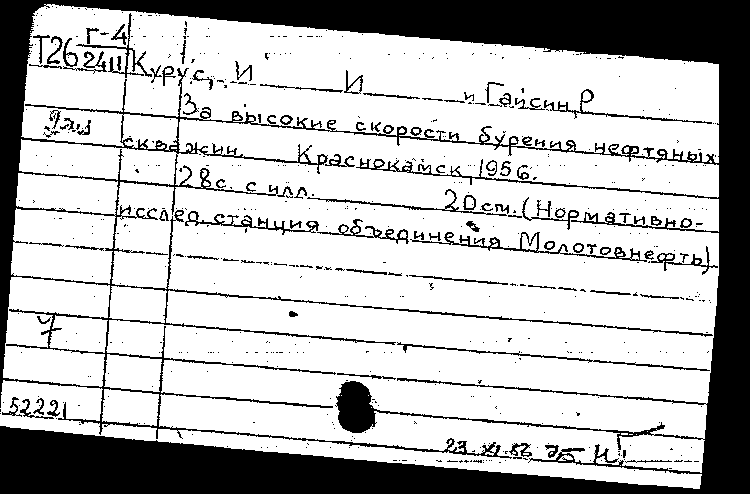 Т26 Г-4
2411
Курус, И И и Гайсин, Р
За высокие скорости бурения нефтяных
скважин. Краснокамск, 1956.
28с. с илл. 20см. (Нормативно-
исслед. станция объединения Молотовнефть)
52221